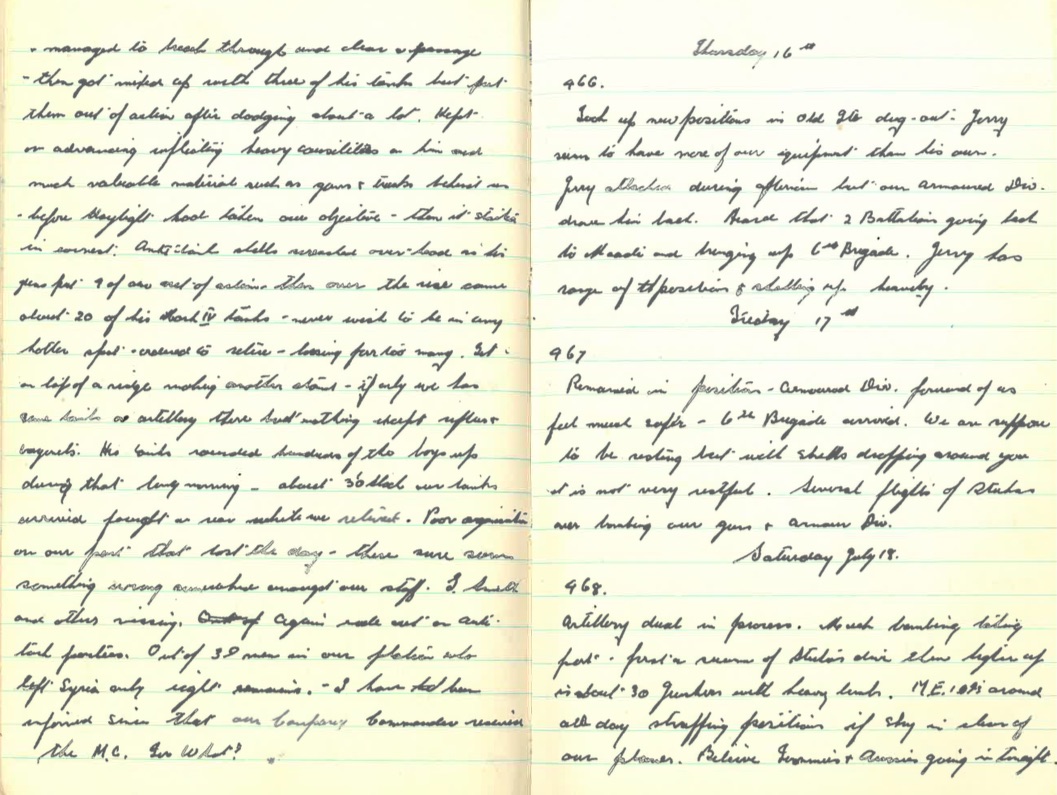 & managed to break through and clear a passage
- then got mixed up with three of his tanks but put
them out of action after dodging about a lot. Kept
on advancing inflicting heavy causilities on him and
much valuable material such as guns & trucks behind us
- before daylight had taken our objective - then it started
in earnest. Anti-tank shells screached over-head as his
guns put 9 of our out of action - then over the rise came
about 20 of his Mark IV tanks - never wish to be in any
hotter spot - ordered to retire - loosing far too many. Got
on top of a ridge making another stand - if only we has
some tanks or artillery there but nothing except rifles &
bayonets. His tanks rounded hundreds of the boys up
during that long morning - about our tanks
arrived fought a rear while we retired. Poor organisation
on our part that lost the day - there sure seems
something wrong somewhere amongst our staff. S.
and others missing. Out of Again rode out on anti-
tank parties. Out of 38 men in our platoon who
left Syria only eight remains. - I have been
informed since that our Company Commander received
the M.C. For What?
Thursday 16th
466.
Took up new positions in old Ite dug-out. Jerry
seems to have more of our equipment than his own.
Jerry attacked during afternoon but our armoured Div.
drove him back. Heard that 2 Battalions going back
to Maadi and bringing up 6th Brigade. Jerry has
range of position & shelling up heavily.
Friday 17th
467
Remained in position - armoured Div. forward of us
feel much safer - 6th Brigade arrived. We are suppose
to be resting but with shells dropping around you
it is not very restful. Several flights of Stukas
over bombing our guns & armour Div.
Saturday July 18.
468.
Artillery dual in process. Much bombing taking
part - first a swarm of Stukas dive then higher up
is about 30 Junkers with heavy bombs. M.E. 109s around
all day straffing positions if sky is clear of
our planes. Believe Tommies & Aussies going in tonight.